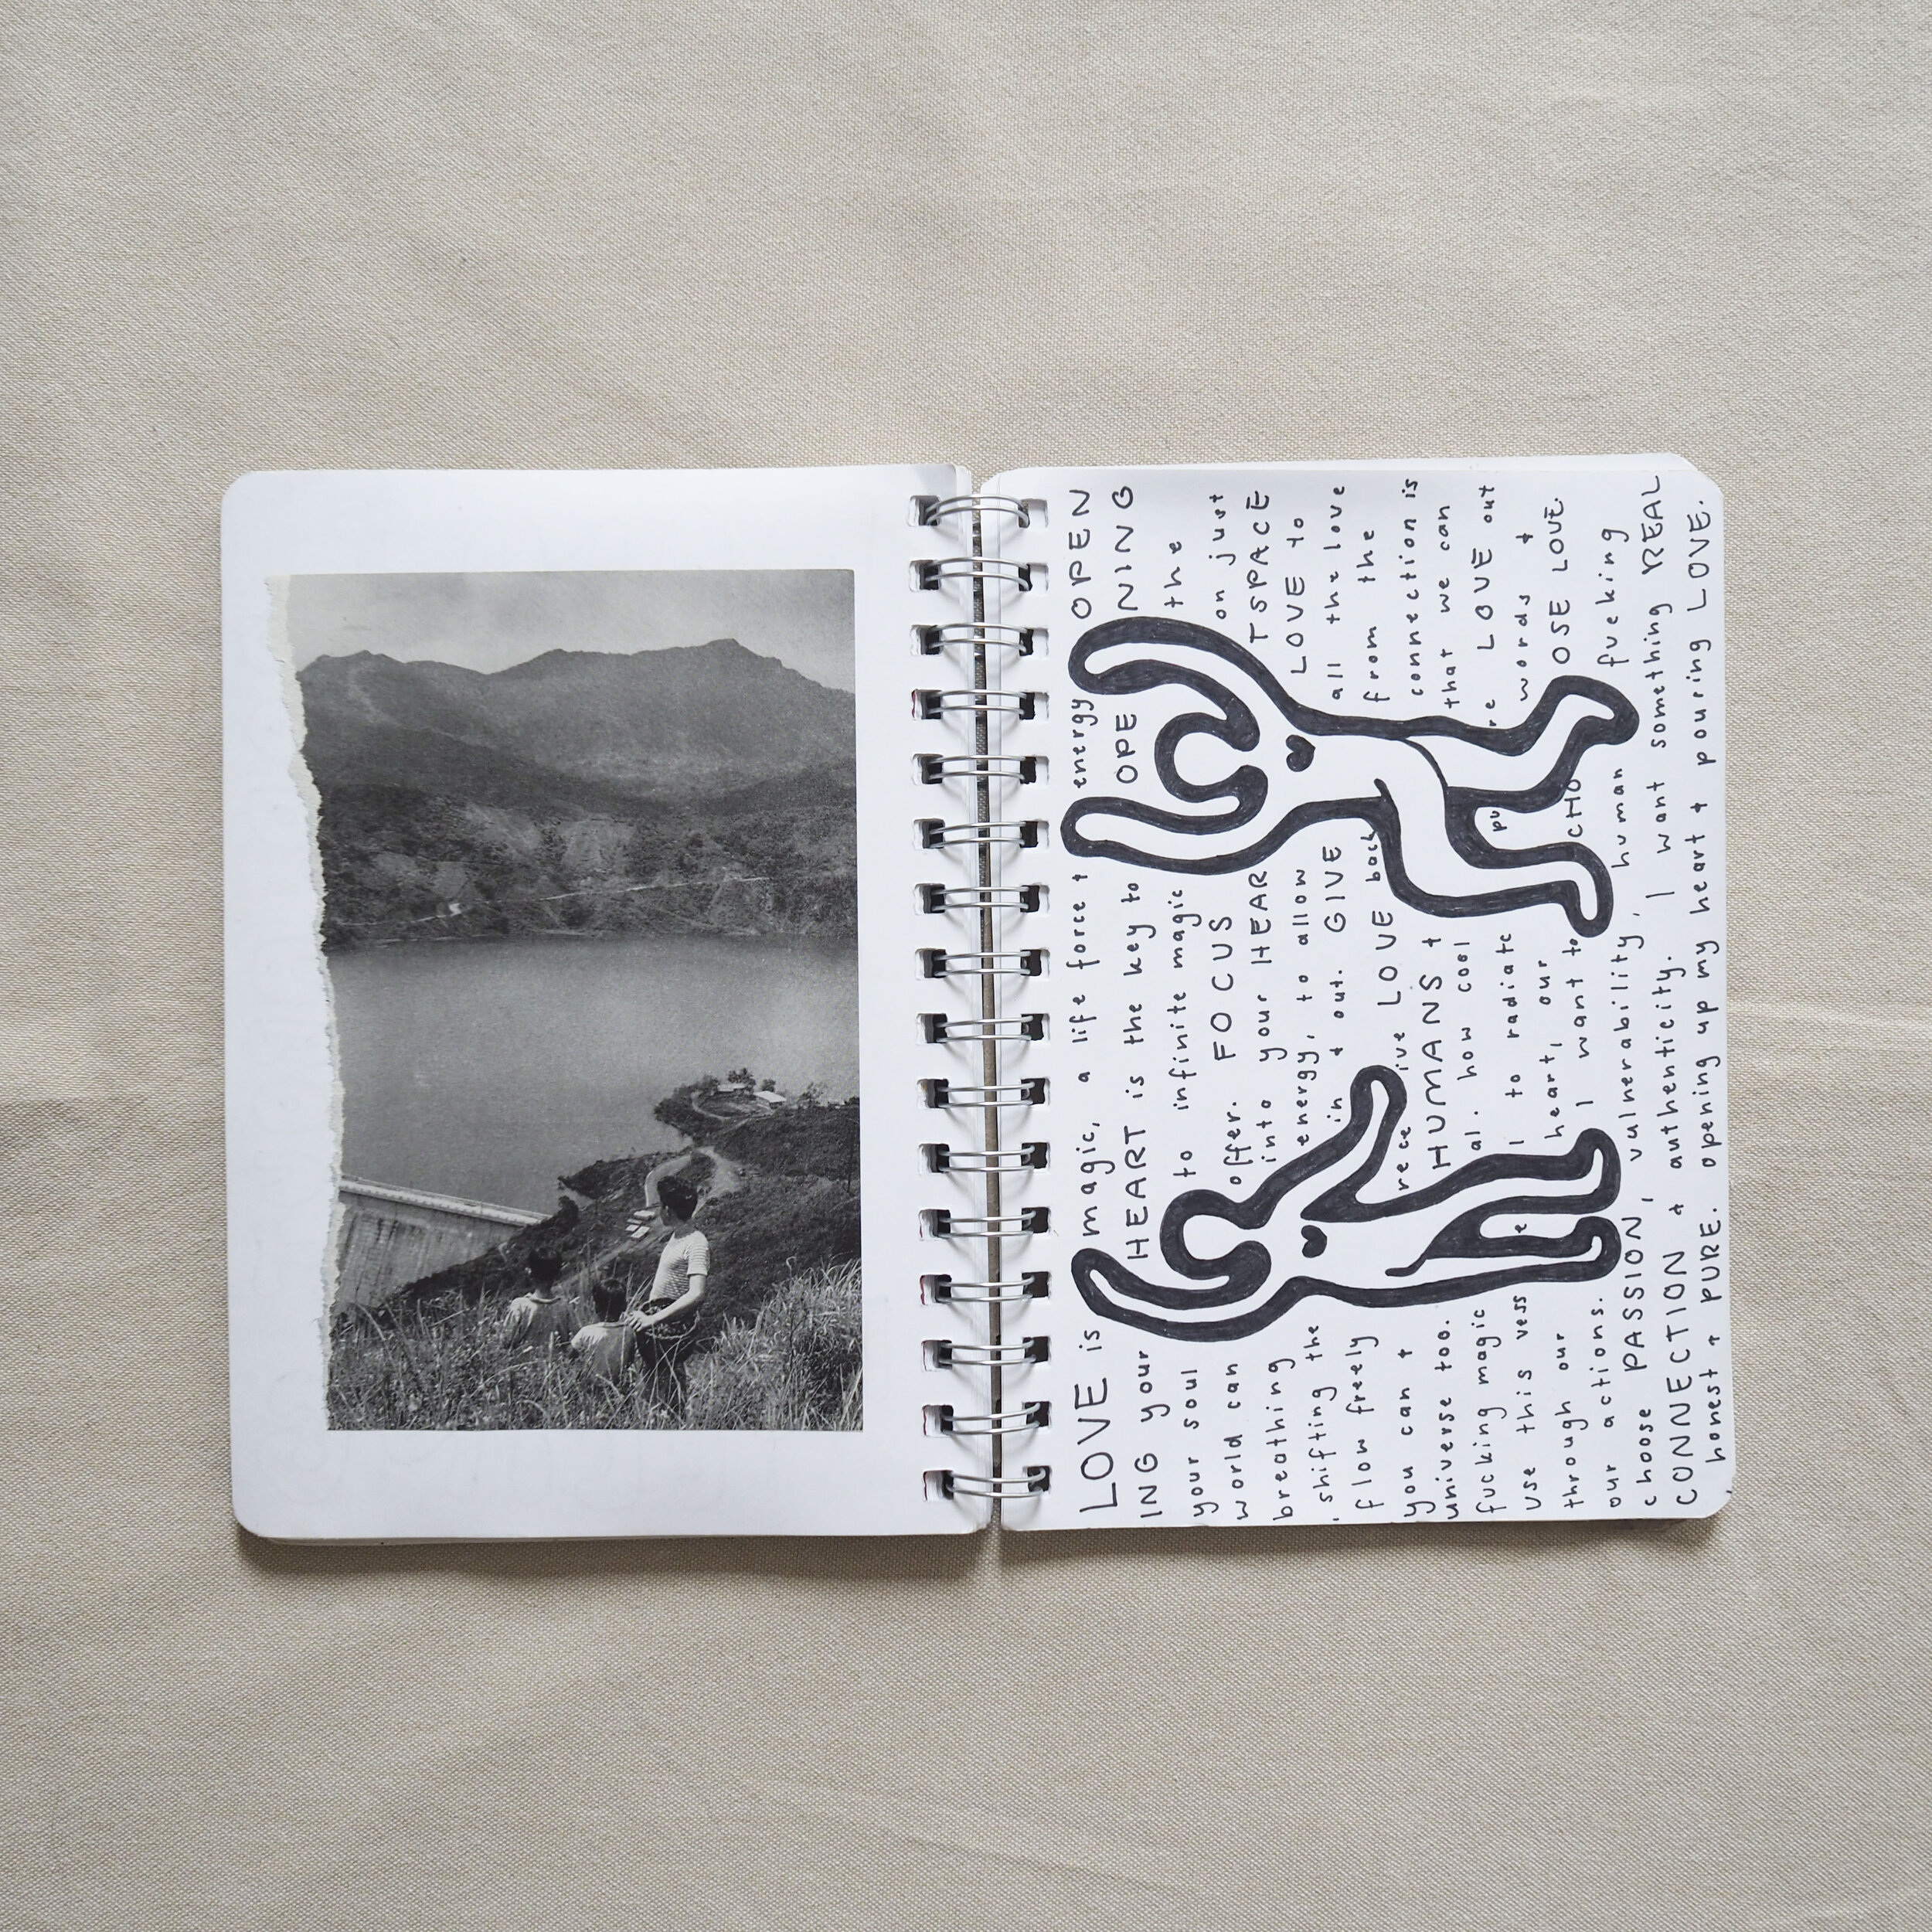 LOVE is magic, a life force + energy OPEN
ING your HEART is the key to OPE NING
your soul to infinite magic the
world can offer. FOCUS on just
breathing into your HEAR TSPACE
, shifting the energy, to allow LOVE to
flow freely in + out. GIVE all the love
you can + rece ive LOVE back from the
universe too. HUMANS + connection is
fucking magic al. how cool that we can
use this vess e l to radiate pu re LOVE out
through our heart, our words +
our actions. I want to CHO OSE LOVE.
choose PASSION, vulnerability, human fucking
CONNECTION + authenticity. I want something REAL
, honest + PURE. opening up my heart + pouring LOVE.